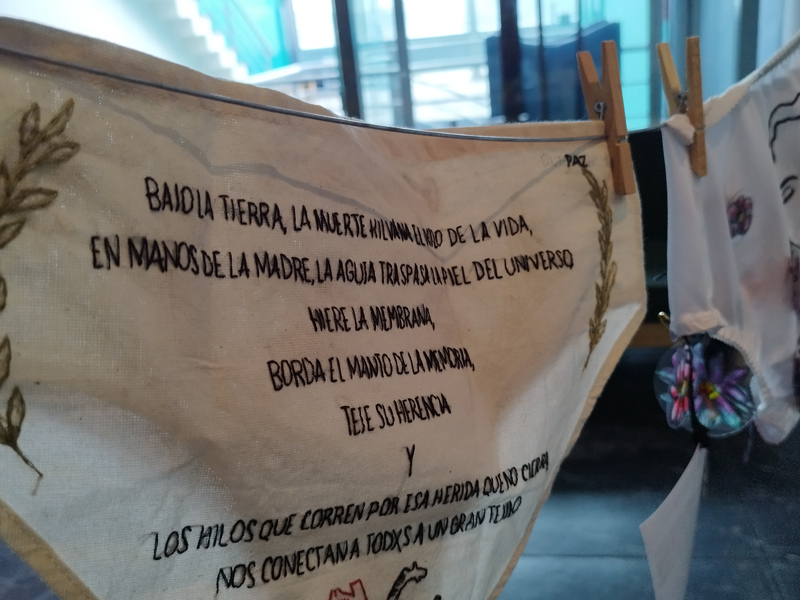 PAZ
BAJO LA TIERRA, LA MUERTE HILVANA EL HILO DE LA VIDA,
EN MANOS DE LA MADRE, LA AGUJA TRASPASA LA PIEL DEL UNIVERSO
HIERE LA MEMBRANA,
BORDA EL MANTO DE LA MEMORIA,
TEJE SU HERENCIA
Y
LOS HILOS QUE CORREN POR ESA HERIDA QUE NO CIERRA
NOS CONECTAN A TODXS A UN GRAN TEJIDO